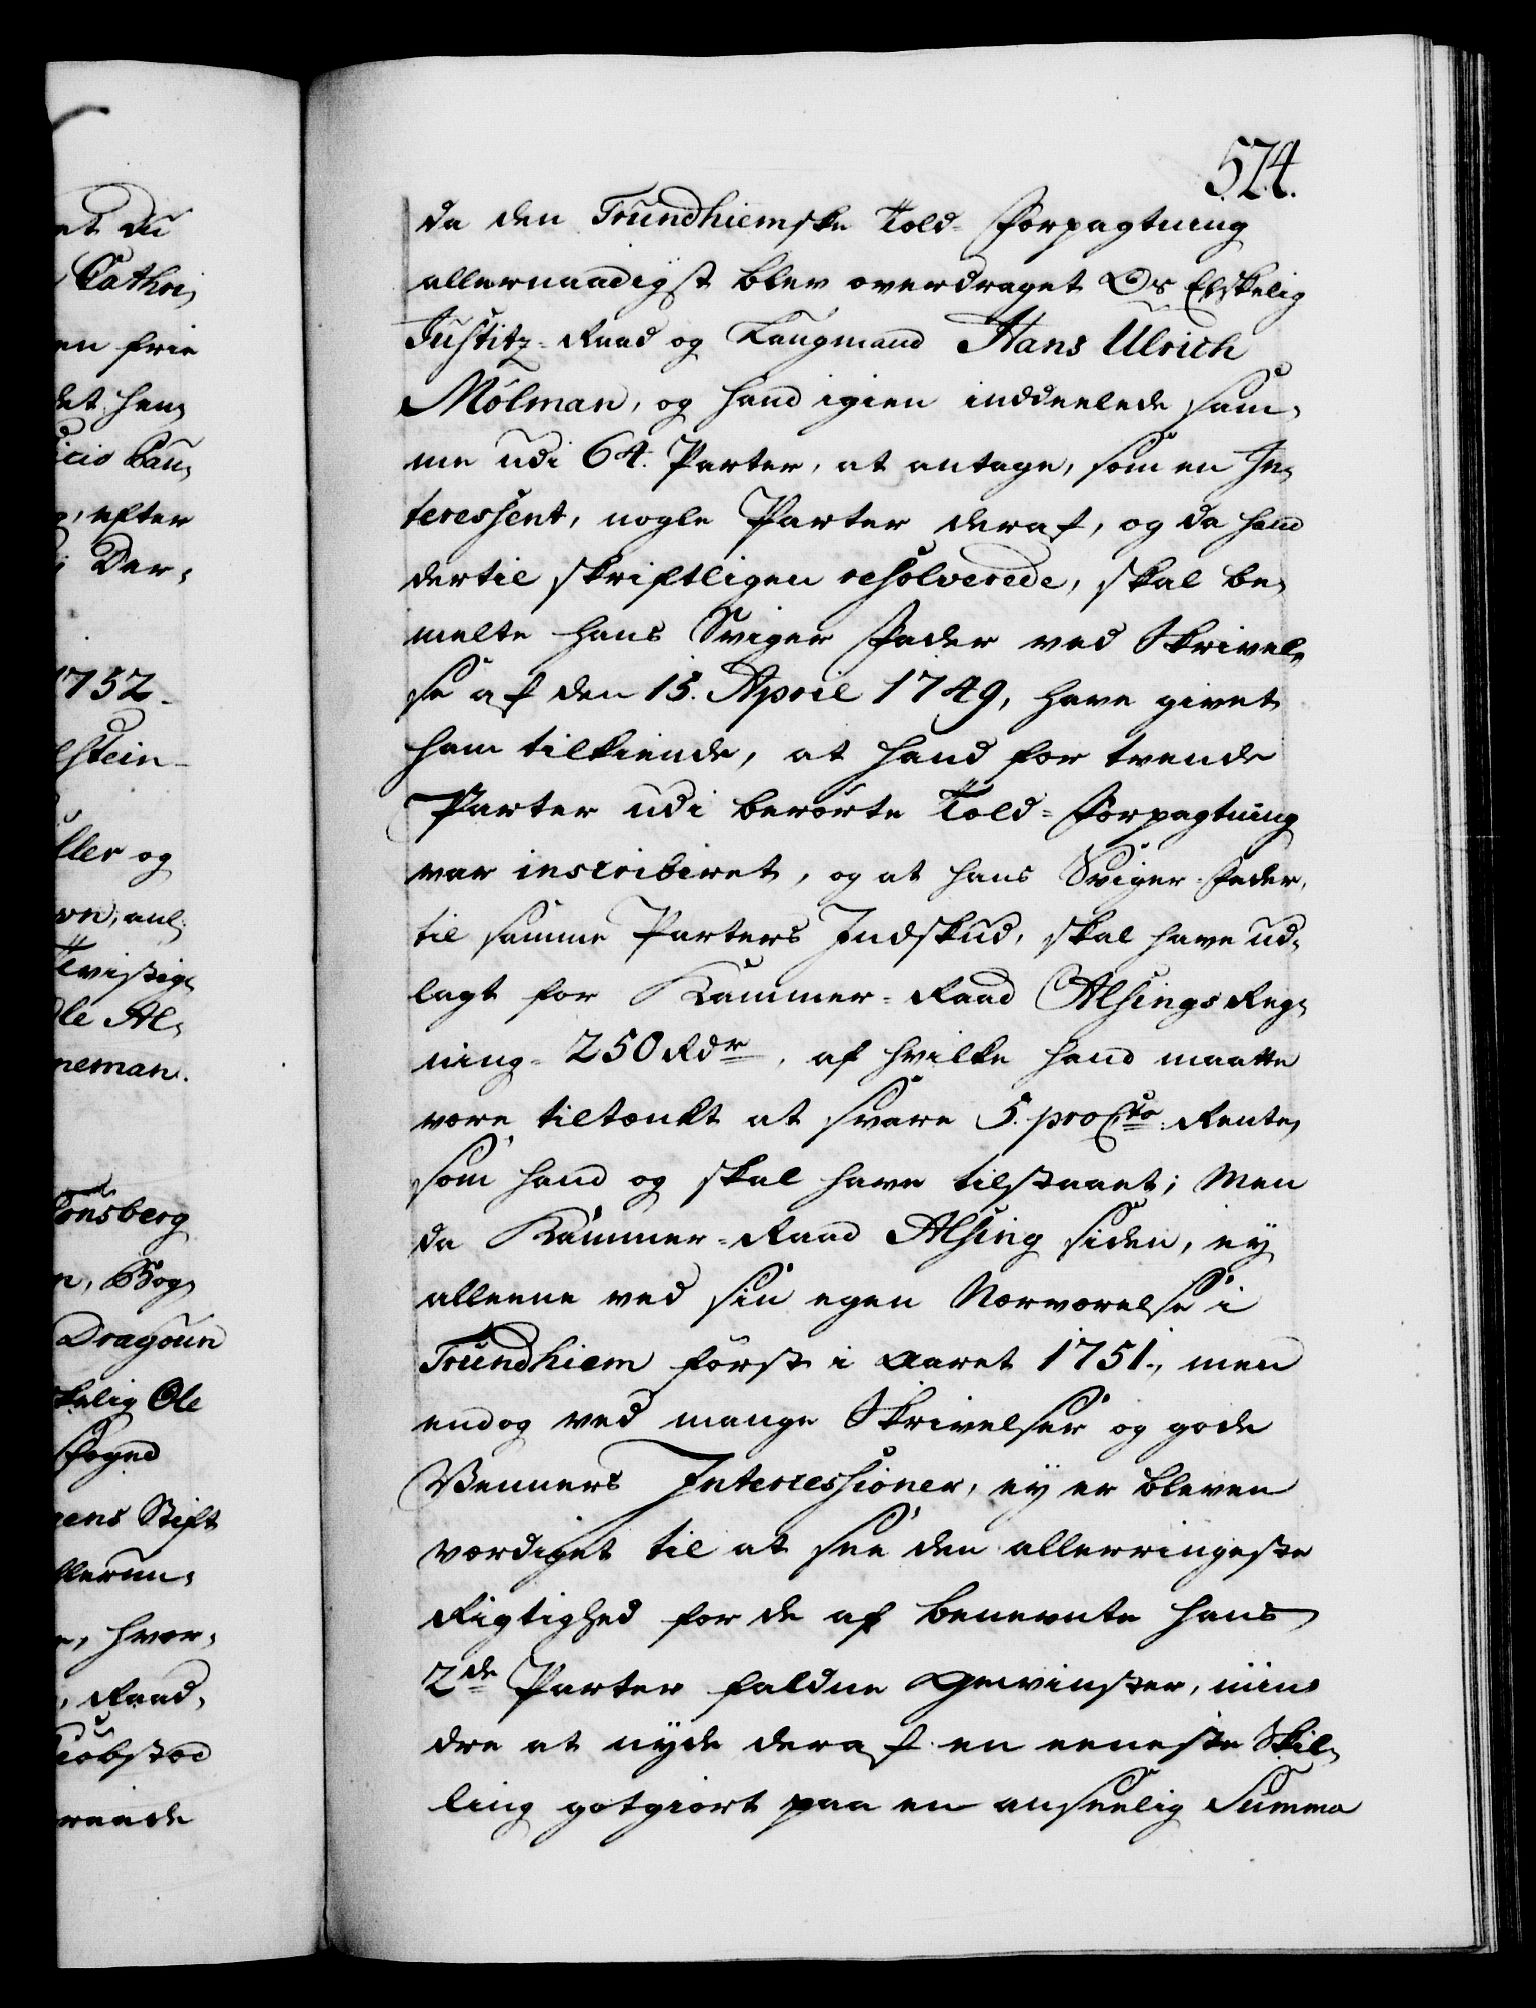 574.
da den Trundhiemske Told-Forpagtning
allernaadigst blev overdraget Os Elskelig
Justitz-Raad og Laugmand Hans Ulrich
Mölman, og hand igien inddeelede sam-
me udi 64. Parter, at antage, som en In-
teressent, nogle Parter deraf, og da hand
dertil skriftligen resolverede, skal be-
melte hans Sviger Fader ved Skrivel-
se af den 15. April 1749, have givet
ham tilkiende, at hand for tvende
Parter udi berörte Told-Forpagtning
var inscribiret, og at hans Sviger-Fader,
til samme Parters Indskud, skal have ud-
lagt for Kammer-Raad Alsings Reg-
ning 250 Rdr, af hvilke hand maatte
være tiltænkt at svare 5. pro Cto Rente,
som hand og skal have tilstaaet; Men
da Kammer-Raad Alsing siden, ey
alleene ved sin egen Nærværelse i
Trundhiem först i Aaret 1751., men
endog ved mange Skrivelser og gode
Venners Intercessioner, ey er bleven
værdiget til at see den allerringeste
Rigtighed for de af benevnte hans
2de Parter faldne Gevinster, min-
dre at nyde deraf en eeneste Skil-
ling gotgiort paa en anseelig Summa
et du
Cathri-
en frie
det hen-
icio Cau-
, efter
Der-
1752
lstein-
ller og
vn, anl:
Tvistig-
de Al-
neman.
onsberg
n, Bog-
Dragoun
kelig Ole
Foged
gens Stift
llerun-
e, hvor-
, Raad,
kiöbsted
raade